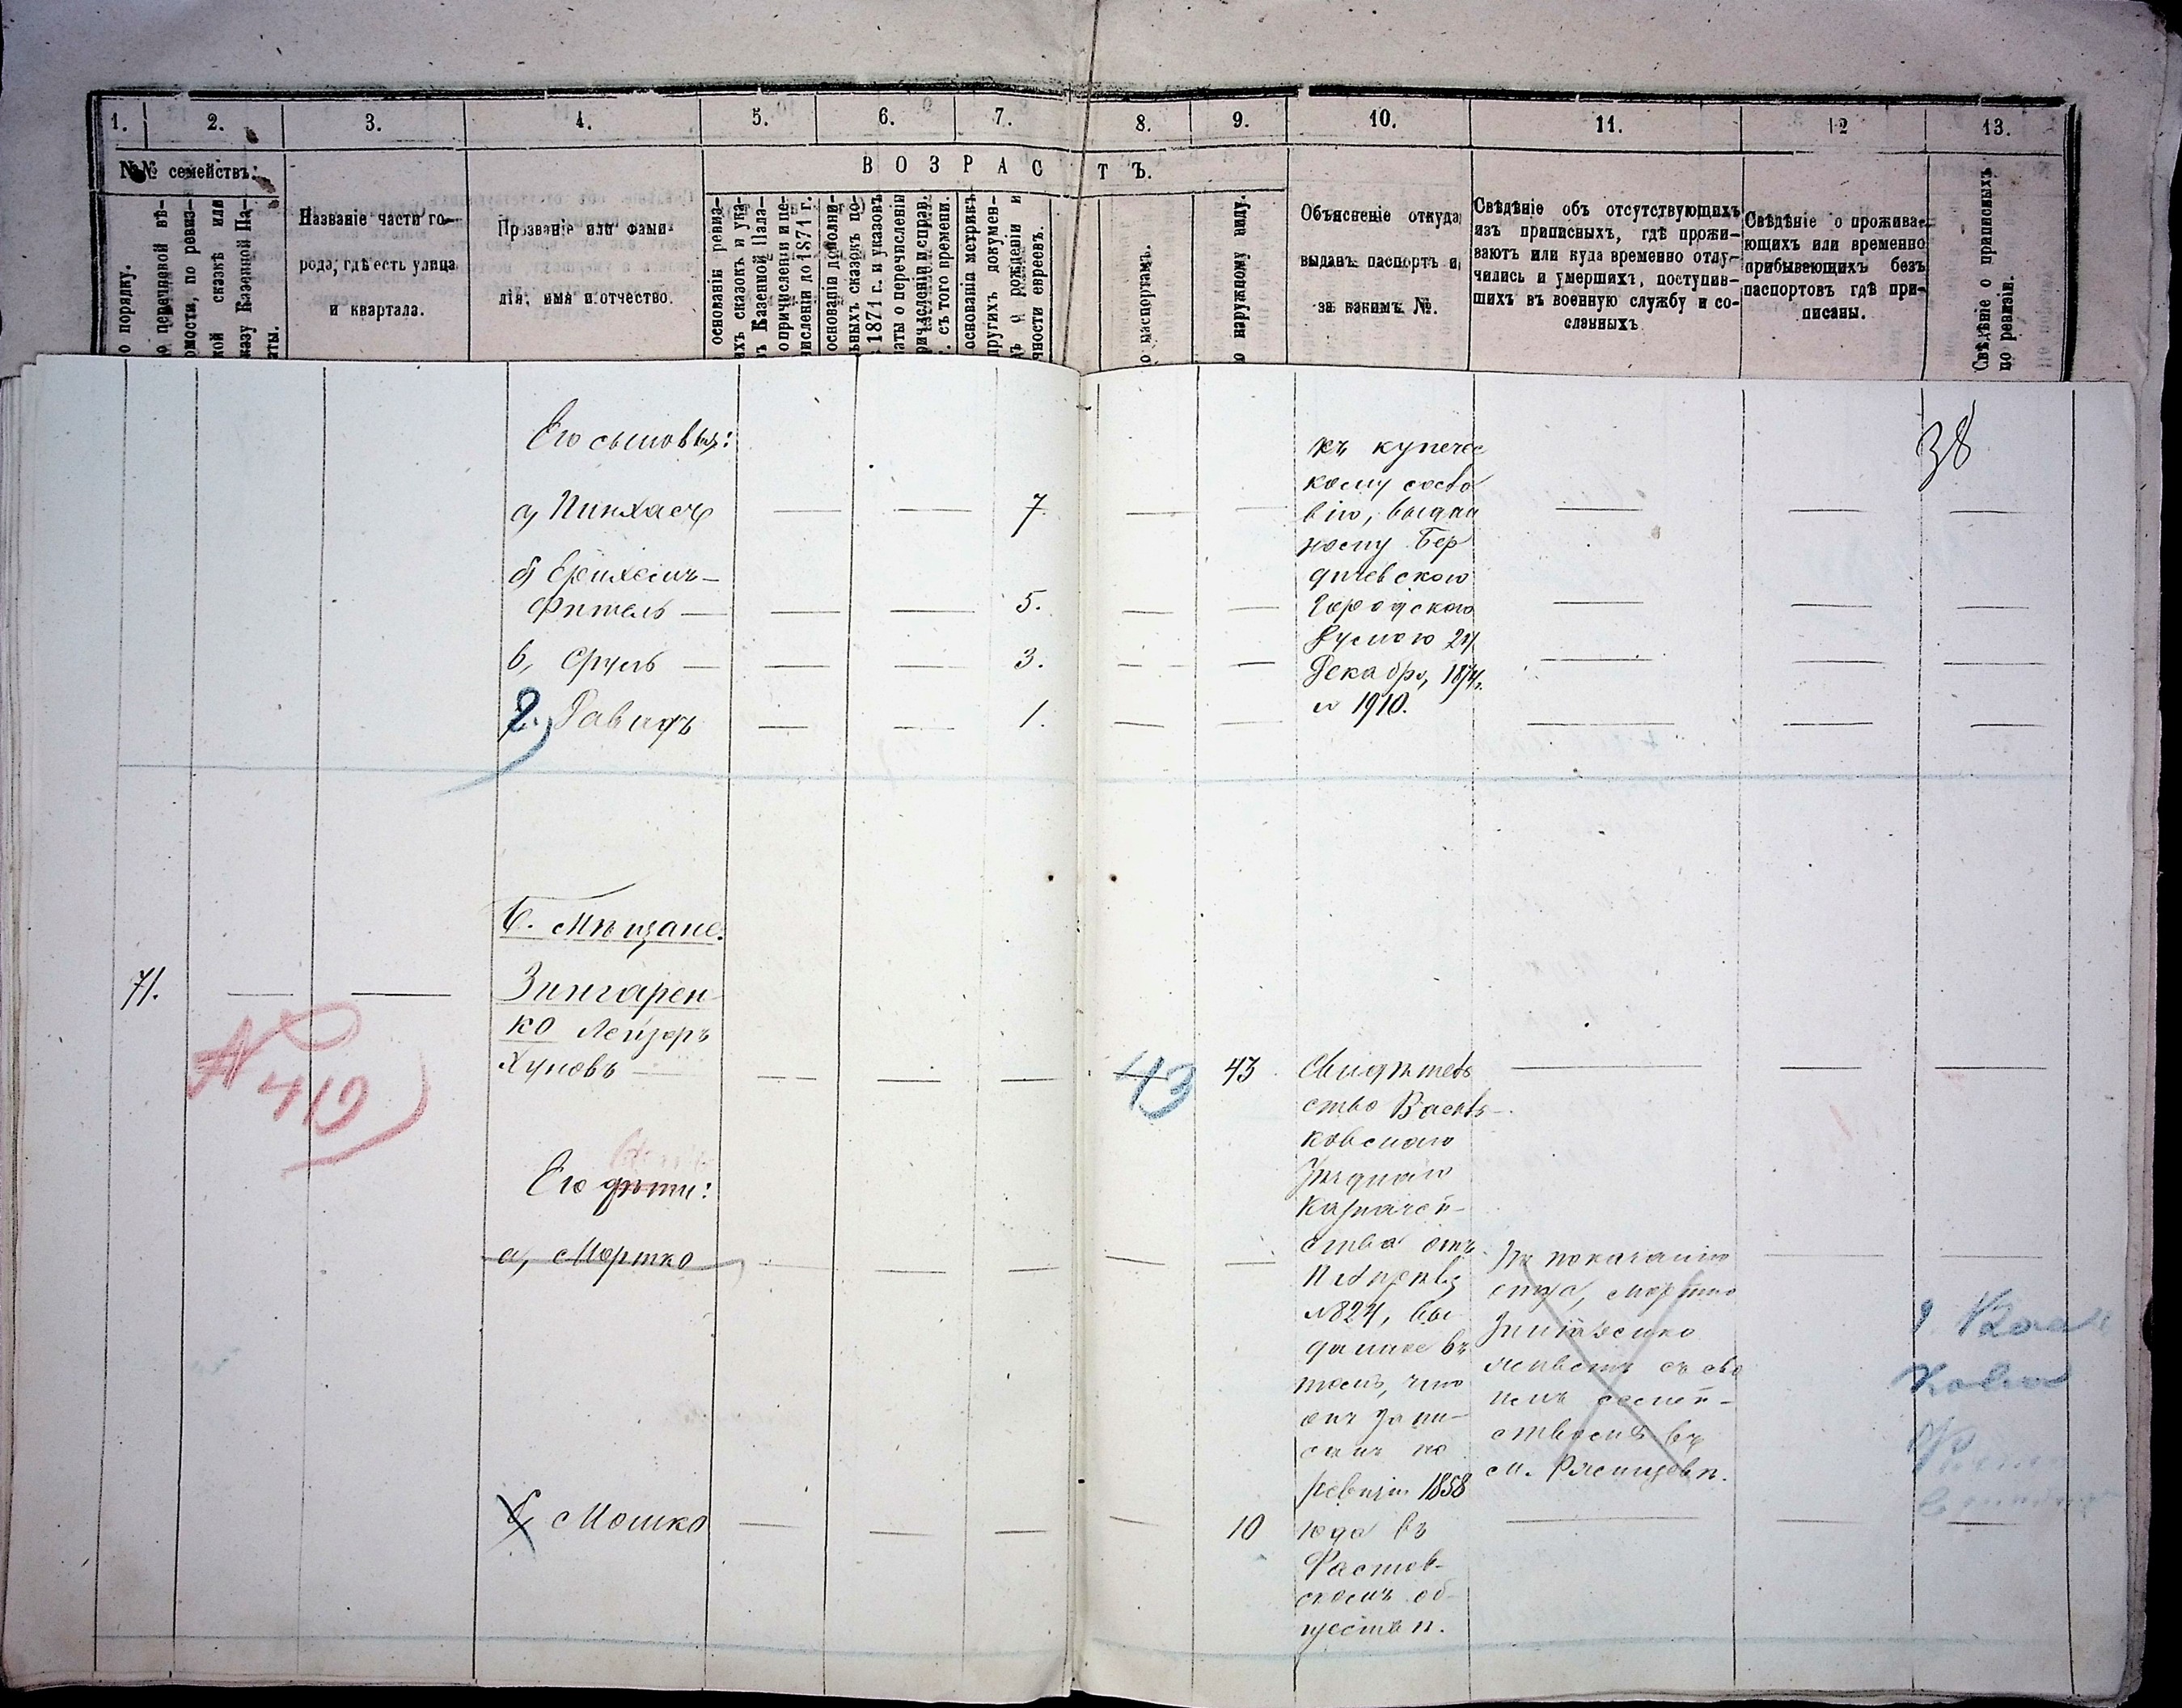 1.
2.
3.
4.
5.
6.
7.
8.
9.
10.
11.
12
13.
№№ семействъ.
ВОЗРАСТЪ.
о порядку.
о перечневой вѣ-
омости, по ревиз-
кой сказкѣ или
казу Казенной Па-
аты.
Названіе части го-
рода, гдѣ есть улица
и квартала.
Прозваніе или фами-
лія, имя и отчество.
основаніи ревиз-
ихъ сказокъ и ука-
въ Казенной Пала-
о причисленіи и пе-
числеліи до 1871 г.
основаніи дополни-
ьныхъ сказокъ по-
1871 г. и указовъ
латы о перечисленіи
причисленіи и справ.
г. съ того времени.
основаніи метрикъ
другихъ докумен-
ъ о рожденіи и
чности евреевъ.
о паспортамъ.
о наружному виду.
Объясненіе откуда
выданъ паспортъ и
за какимъ №.
Свѣдѣніе объ отсутствующихъ
изъ приписныхъ, гдѣ прожи-
ваютъ или куда временно отлу-
чились и умершихъ, поступив-
шихъ въ военную службу и со-
сланныхъ
Свѣдѣніе о прожива-
ющихъ или временно
прибывающихъ безъ
паспортовъ гдѣ при-
писаны.
Свѣдѣніе о приписныхъ
по ревизіи.
38
Его сыновья:
а) Пинхасъ
7
б)
Фитель
5.
в, Сруль
3.
2. Давидъ
1.
къ купечес
кому сосло
вію, выдан
ному Бер
дичевскою
Городскою
Думою 24
Декабря, 1874 г.
№ 1910.
Б. Мѣщане.
71.
№ 419
Зингарен-
ко Лейзоръ
Хуновъ
43
43
Его дѣти:
а, Мортко
б, Мошко
10
Свидѣтель
ство Василь-
ковскаго
Уѣзднаго
Казначей-
ства отъ
№ 824, вы
данное въ
томъ, что
онъ запи-
санъ по
ревизіи 1858
года въ
Фастов-
скомъ об-
ществѣ.
По показанію
отца, Мортко
живетъ съ сво
имъ семей-
ствомъ въ
м. Ржищевѣ.